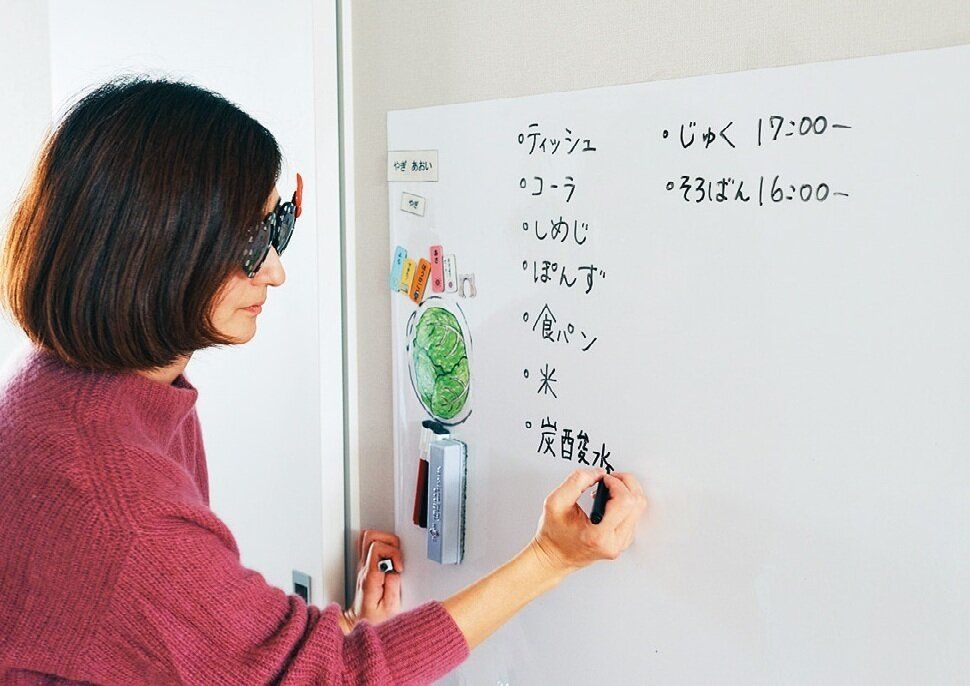 ・ティッシュ
・コーラ
・しめじ
・ぽんず
・食パン
・米
・炭酸水
・じゅく 17:00〜
・そろばん 16:00〜
やぎ あおい
やぎ